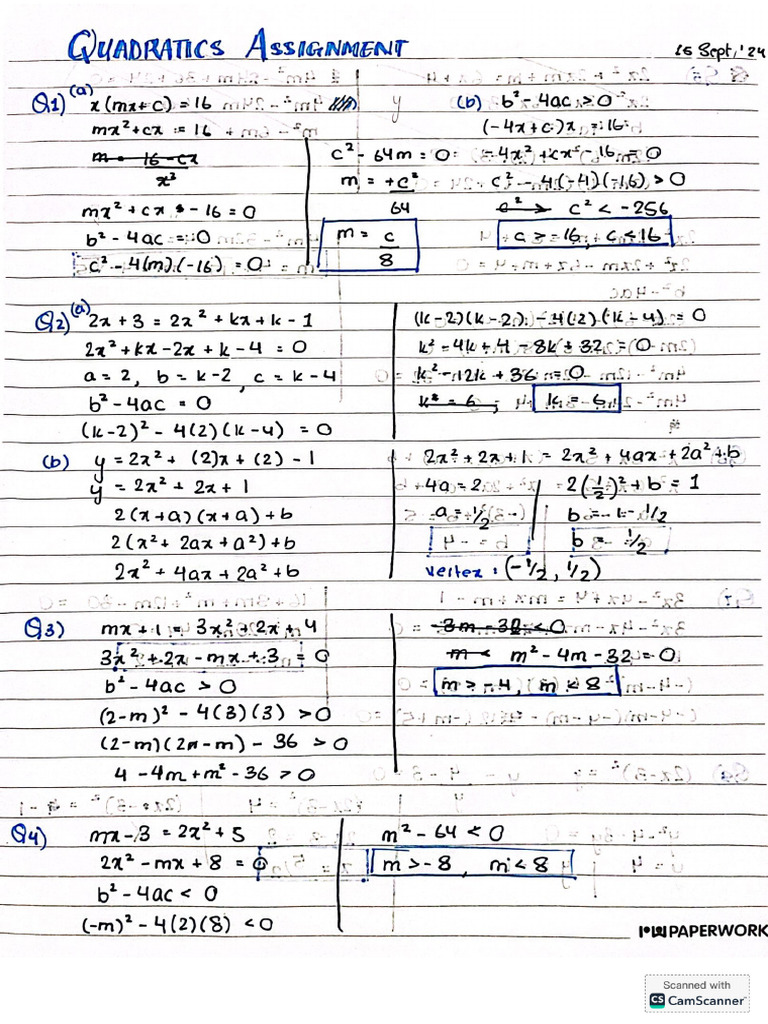 QUADRATICS ASSIGNMENT
15 Sept,'24
Q1) (a) x(mx+c) = 16
mx²+cx = 16
m = 16-cx
x²
mx² + cx - 16 = 0
b² - 4ac = 0
c² - 4(m)(-16) = 0
c² - 64m = 0
m = +c²
64
m = c
8
y
(b) b² - 4ac > 0
(-4x+c)x = 16
-4x² + cx - 16 = 0
c² - 4(-4)(-16) > 0
c² < -256
c > = 16, c < 16
Q2) (a) 2x + 3 = 2x² + kx + k - 1
2x² + kx - 2x + k - 4 = 0
a = 2, b = k-2, c = k-4
b² - 4ac = 0
(k-2)² - 4(2)(k-4) = 0
(k-2)(k-2) - 4(2)(k-4) = 0
k² - 4k + 4 - 8k + 32 = 0
k² - 12k + 36 = 0
k² = 6, k = 6
(b) y = 2x² + (2)x + (2) - 1
y = 2x² + 2x + 1
2(x+a)(x+a) + b
2(x² + 2ax + a²) + b
2x² + 4ax + 2a² + b
2x² + 2x + 1 = 2x² + 4ax + 2a² + b
4a = 2
a = 1/2
2(1/2)² + b = 1
b = 1 - 1/2
b = 1/2
vertex : (-1/2, 1/2)
Q3) mx + 1 = 3x² + 2x + 4
3x² + 2x - mx + 3 = 0
b² - 4ac > 0
(2-m)² - 4(3)(3) > 0
(2-m)(2-m) - 36 > 0
4 - 4m + m² - 36 > 0
-3m - 32 < 0
m < m² - 4m - 32 = 0
m > -4, m < 8
Q4) mx - 3 = 2x² + 5
2x² - mx + 8 = 0
b² - 4ac < 0
(-m)² - 4(2)(8) < 0
m² - 64 < 0
m > -8, m < 8
PAPERWORK
Scanned with
CS CamScanner